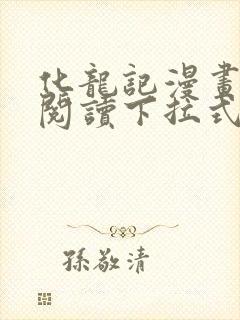 化龍記漫畫
閱讀下拉式
孫敬清